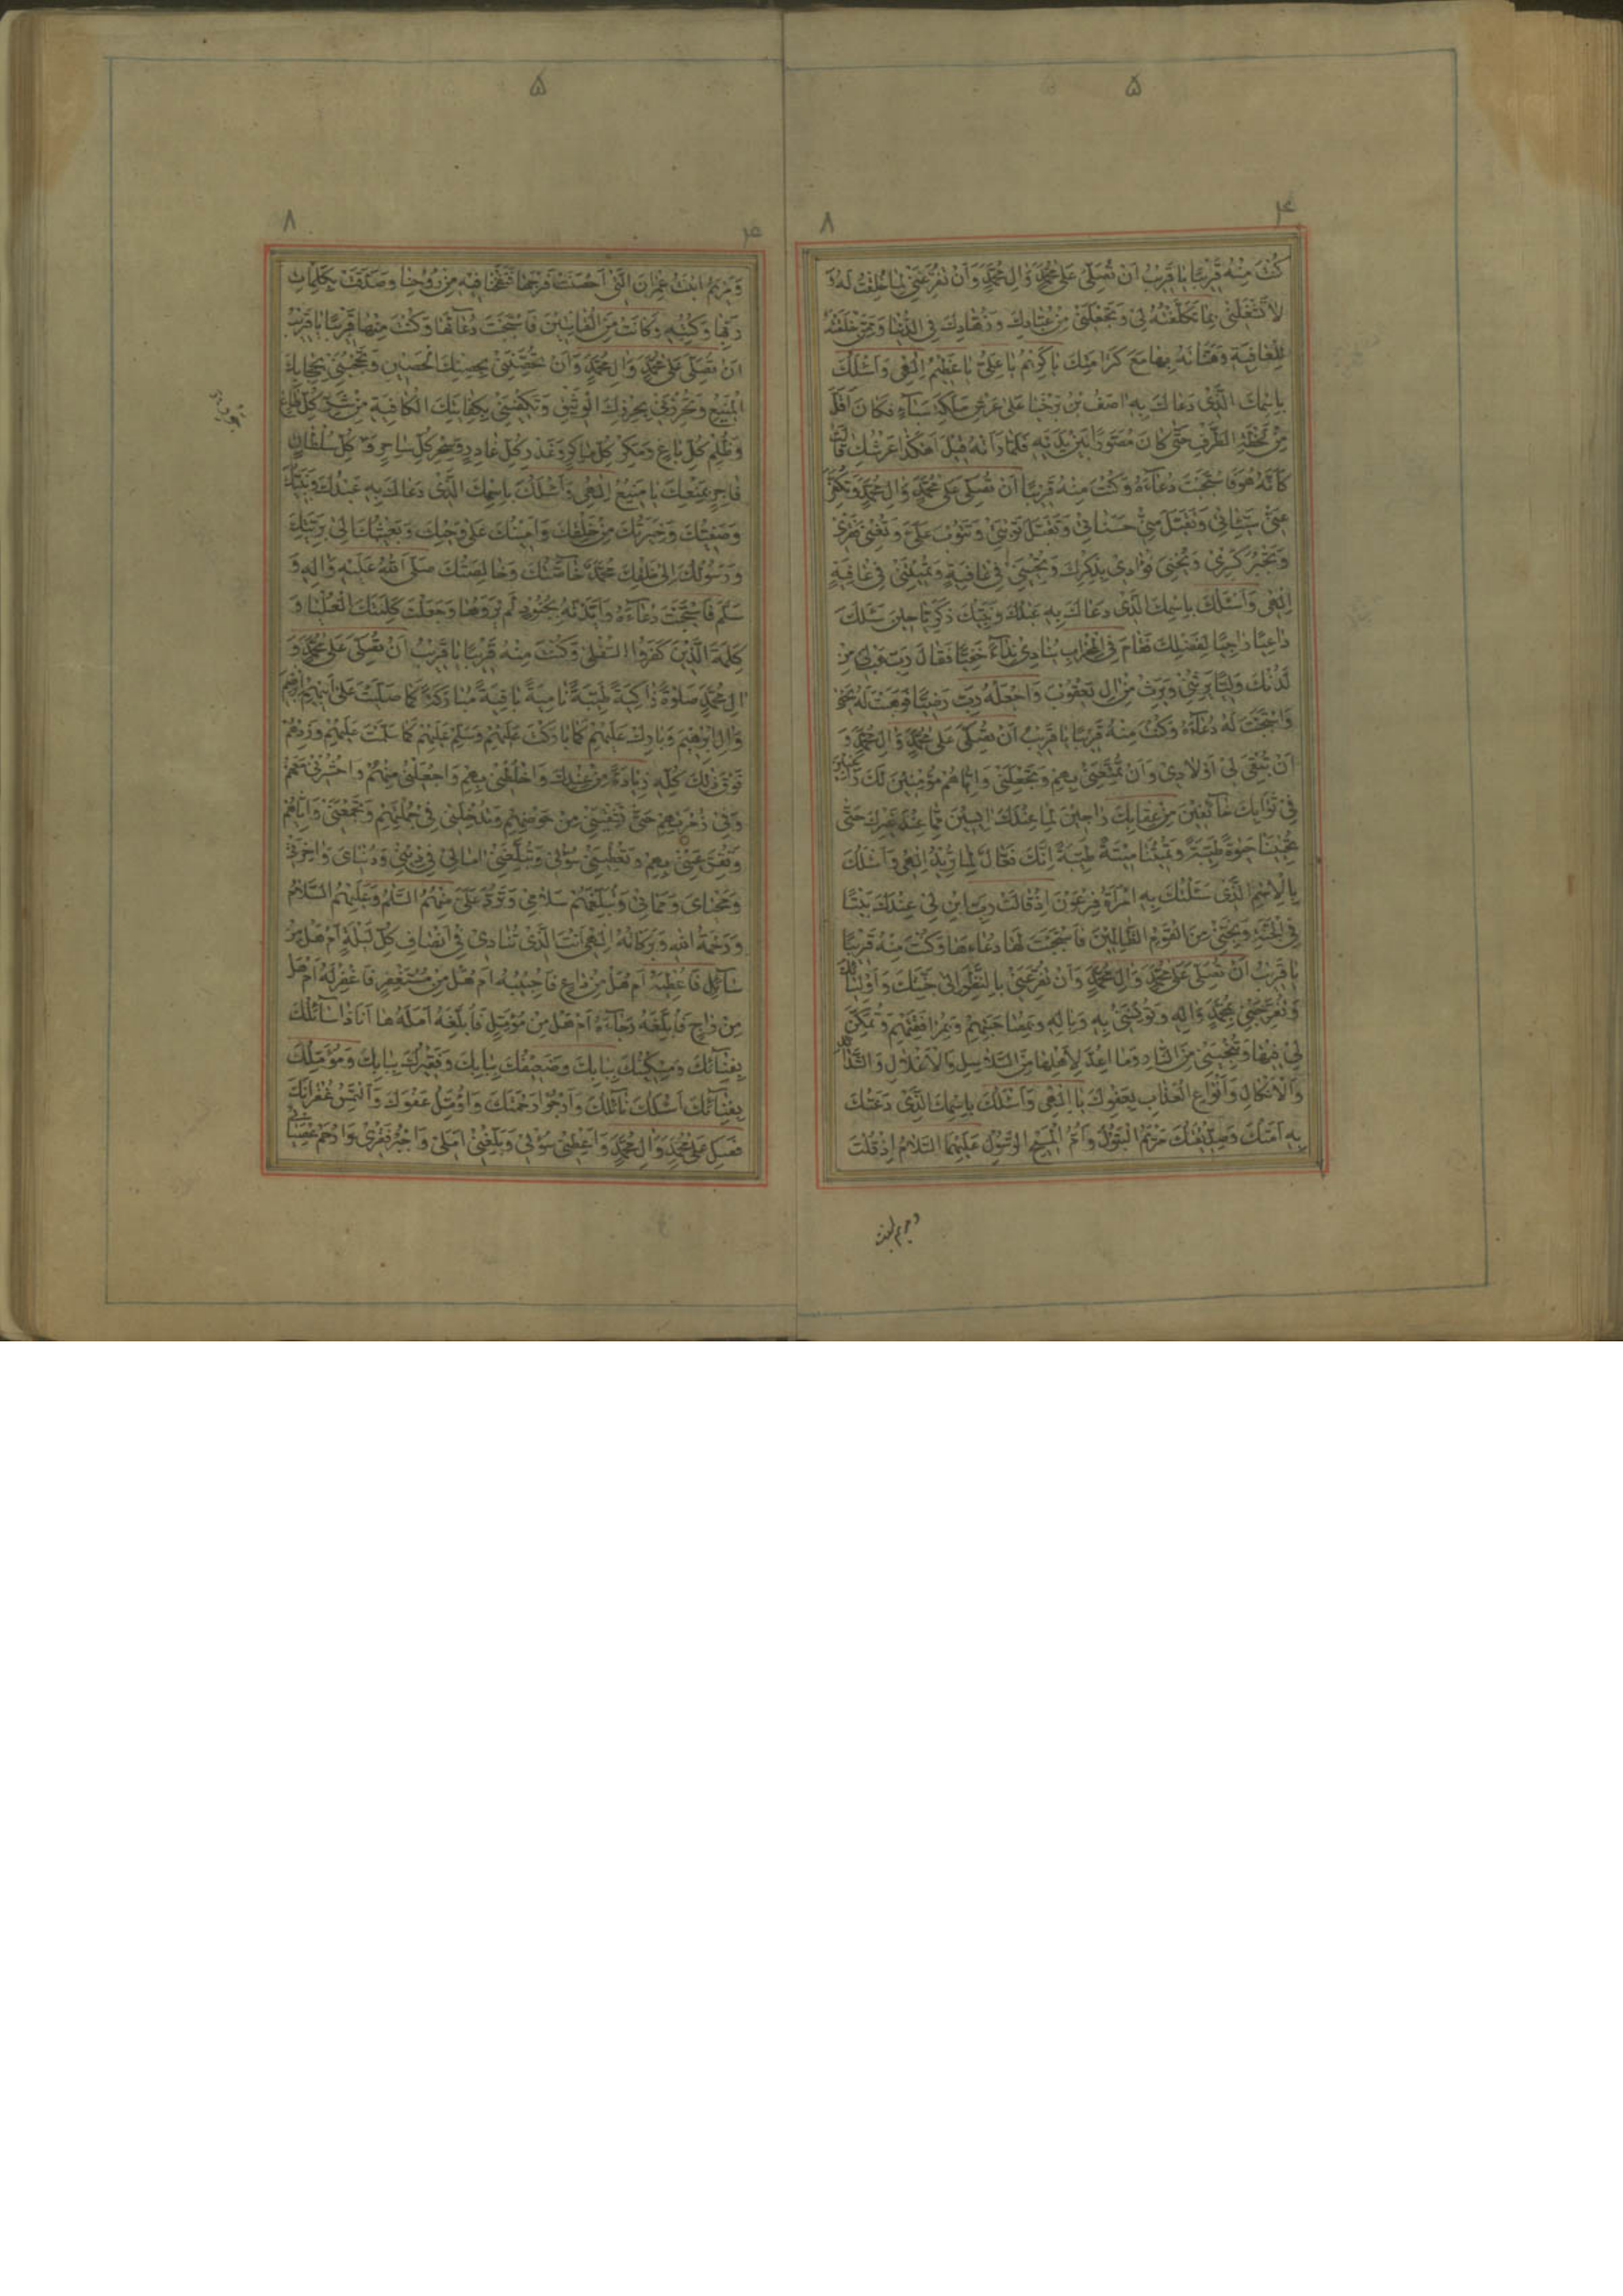 ۵
۴
۸
كُنْتَ مِنْهُ قَرِيبًا يا قَرِيبُ اَنْ تُصَلِّيَ عَلى مُحَمَّدٍ وَالِ مُحَمَّدٍ وَاَنْ تُفَرِّغَنِي لِما خَلَقْتَ لَهُ وَ
لا تَشْغَلَنِي بِما تَكَلَّفْتَهُ لِي وَتَجْعَلَنِي مِنْ عُبّادِكَ وَزُهّادِكَ فِي الدُّنْيا وَمِمَّنْ خَلَقْتَهُ
لِلْعافِيَةِ وَهَنَّأْتَهُ بِها مَعَ كَرامَتِكَ يا كَرِيمُ يا عَلِيُّ يا عَظِيمُ اِلهِي وَاَسْئَلُكَ
بِاسْمِكَ الَّذِي دَعاكَ بِهِ اصَفُ بْنُ بَرْخِيا عَلى عَرْشِ مَلِكَةِ سَبَاءٍ فَكانَ اَقَلَّ
مِنْ لَحْظَةِ الطَّرْفِ حَتّى كانَ مُصَوَّرًا بَيْنَ يَدَيْهِ فَلَمّا رَاَتْهُ قِيلَ اَهكَذا عَرْشُكِ قالَتْ
كَاَنَّهُ هُوَ فَاسْتَجَبْتَ دُعاءَهُ وَكُنْتَ مِنْهُ قَرِيبًا اَنْ تُصَلِّيَ عَلى مُحَمَّدٍ وَالِ مُحَمَّدٍ وَتُكَفِّرَ
عَنِّي سَيِّئاتِي وَتَقْبَلَ مِنِّي حَسَناتِي وَتَقْبَلَ تَوْبَتِي وَتَتُوبَ عَلَيَّ وَتُغْنِيَ فَقْرِي
وَتَجْبُرَ كَسْرِي وَتُحْيِيَ فُؤادِي بِذِكْرِكَ وَتُحْيِيَنِي فِي عافِيَةٍ وَتُمِيتَنِي فِي عافِيَةٍ
اِلهِي وَاَسْئَلُكَ بِاسْمِكَ الَّذِي دَعاكَ بِهِ عَبْدُكَ وَنَبِيُّكَ زَكَرِيّا حِينَ سَئَلَكَ
داعِيًا راجِيًا لِفَضْلِكَ فَقامَ فِي الْمِحْرابِ يُنادِي نِداءً خَفِيًّا فَقالَ رَبِّ هَبْ لِي مِنْ
لَدُنْكَ وَلِيًّا يَرِثُنِي وَيَرِثُ مِنْ الِ يَعْقُوبَ وَاجْعَلْهُ رَبِّ رَضِيًّا فَوَهَبْتَ لَهُ يَحْيى
وَاسْتَجَبْتَ لَهُ دُعاءَهُ وَكُنْتَ مِنْهُ قَرِيبًا يا قَرِيبُ اَنْ تُصَلِّيَ عَلى مُحَمَّدٍ وَالِ مُحَمَّدٍ وَ
اَنْ تُبْقِيَ لِي اَوْلادِي وَاَنْ تُمَتِّعَنِي بِهِمْ وَتَجْعَلَنِي وَاِيّاهُمْ مُؤْمِنِينَ لَكَ راغِبِينَ
فِي ثَوابِكَ خائِفِينَ مِنْ عِقابِكَ راجِينَ لِما عِنْدَكَ ايِسِينَ مِمّا عِنْدَ غَيْرِكَ حَتّى
تُحْيِيَنا حَيوةً طَيِّبَةً وَتُمِيتَنا مِيتَةً طَيِّبَةً اِنَّكَ فَعّالٌ لِما تُرِيدُ اِلهِي وَاَسْئَلُكَ
بِالْاِسْمِ الَّذِي سَئَلَتْكَ بِهِ امْرَاَةُ فِرْعَوْنَ اِذْ قالَتْ رَبِّ ابْنِ لِي عِنْدَكَ بَيْتًا
فِي الْجَنَّةِ وَنَجِّنِي مِنَ الْقَوْمِ الظّالِمِينَ فَاسْتَجَبْتَ لَها دُعاءَها وَكُنْتَ مِنْهُ قَرِيبًا
يا قَرِيبُ اَنْ تُصَلِّيَ عَلى مُحَمَّدٍ وَالِ مُحَمَّدٍ وَاَنْ تُقِرَّ عَيْنِي بِالنَّظَرِ اِلى جَنَّتِكَ وَاَوْلِيائِكَ
وَتُفَرِّحَنِي بِمُحَمَّدٍ وَالِهِ وَتُؤْنِسَنِي بِهِ وَبِالِهِ وَبِمُصاحَبَتِهِمْ وَبِمُرافَقَتِهِمْ وَتُمَكِّنَ
لِي فِيها وَتُنْجِيَنِي مِنَ النّارِ وَما اُعِدَّ لِاَهْلِها مِنَ السَّلاسِلِ وَالْاَغْلالِ وَالشَّدائِدِ
وَالْاَنْكالِ وَاَنْواعِ الْعَذابِ بِعَفْوِكَ يا اِلهِي وَاَسْئَلُكَ بِاسْمِكَ الَّذِي دَعَتْكَ
بِهِ اَمَتُكَ وَصِدِّيقَتُكَ مَرْيَمُ الْبَتُولُ وَاُمُّ الْمَسِيحِ الرَّسُولِ عَلَيْهِمَا السَّلامُ اِذْ قُلْتَ
ومريم ابنت
۵
۴
۸
وَمَرْيَمَ ابْنَتَ عِمْرانَ الَّتِي اَحْصَنَتْ فَرْجَها فَنَفَخْنا فِيهِ مِنْ رُوحِنا وَصَدَّقَتْ بِكَلِماتِ
رَبِّها وَكُتُبِهِ وَكانَتْ مِنَ الْقانِتِينَ فَاسْتَجَبْتَ دُعاءَها وَكُنْتَ مِنْها قَرِيبًا يا قَرِيبُ
اَنْ تُصَلِّيَ عَلى مُحَمَّدٍ وَالِ مُحَمَّدٍ وَاَنْ تُحَصِّنَنِي بِحِصْنِكَ الْحَصِينِ وَتَحْجُبَنِي بِحِجابِكَ
الْمَنِيعِ وَتُحْرِزَنِي بِحِرْزِكَ الْوَثِيقِ وَتَكْفِيَنِي بِكِفايَتِكَ الْكافِيَةِ مِنْ شَرِّ كُلِّ طاغٍ
وَظُلْمِ كُلِّ باغٍ وَمَكْرِ كُلِّ ماكِرٍ وَغَدْرِ كُلِّ غادِرٍ وَسِحْرِ كُلِّ ساحِرٍ وَ كُلِّ سُلْطانٍ
فاجِرٍ بِمَنْعِكَ يا مَنِيعُ اِلهِي وَاَسْئَلُكَ بِاسْمِكَ الَّذِي دَعاكَ بِهِ عَبْدُكَ وَنَبِيُّكَ
وَصَفِيُّكَ وَخِيَرَتُكَ مِنْ خَلْقِكَ وَاَمِينُكَ عَلى وَحْيِكَ وَبَعِيثُكَ اِلى بَرِيَّتِكَ
وَرَسُولُكَ اِلى خَلْقِكَ مُحَمَّدٌ خاصَّتُكَ وَخالِصَتُكَ صَلَّى اللهُ عَلَيْهِ وَالِهِ وَ
سَلَّمَ فَاسْتَجَبْتَ دُعاءَهُ وَاَيَّدْتَهُ بِجُنُودٍ لَمْ يَرَوْها وَجَعَلْتَ كَلِمَتَكَ الْعُلْيا وَ
كَلِمَةَ الَّذِينَ كَفَرُوا السُّفْلى وَكُنْتَ مِنْهُ قَرِيبًا يا قَرِيبُ اَنْ تُصَلِّيَ عَلى مُحَمَّدٍ وَ
الِ مُحَمَّدٍ صَلوةً زاكِيَةً طَيِّبَةً نامِيَةً باقِيَةً مُبارَكَةً كَما صَلَّيْتَ عَلى اَبِيهِمْ اِبْرهِيمَ
وَالِ اِبْرهِيمَ وَبارِكْ عَلَيْهِمْ كَما بارَكْتَ عَلَيْهِمْ وَسَلِّمْ عَلَيْهِمْ كَما سَلَّمْتَ عَلَيْهِمْ وَزِدْهُمْ
فَوْقَ ذلِكَ كُلِّهِ زِيادَةً مِنْ عِنْدِكَ وَاخْلُطْنِي بِهِمْ وَاجْعَلْنِي مِنْهُمْ وَاحْشُرْنِي مَعَهُمْ
وَفِي زُمْرَتِهِمْ حَتّى تَسْقِيَنِي مِنْ حَوْضِهِمْ وَتُدْخِلَنِي فِي جُمْلَتِهِمْ وَتَجْمَعَنِي وَاِيّاهُمْ
وَتُقِرَّ عَيْنِي بِهِمْ وَتُعْطِيَنِي سُؤْلِي وَتُبَلِّغَنِي امالِي فِي دِينِي وَدُنْيايَ وَاخِرَتِي
وَمَحْيايَ وَمَماتِي وَتُبَلِّغَهُمْ سَلامِي وَتَرُدَّ عَلَيَّ مِنْهُمُ السَّلامَ وَعَلَيْهِمُ السَّلامُ
وَرَحْمَةُ اللهِ وَبَرَكاتُهُ اِلهِي اَنْتَ الَّذِي تُنادِي فِي اَنْصافِ كُلِّ لَيْلَةٍ اَمْ هَلْ مِنْ
سائِلٍ فَاُعْطِيَهُ اَمْ هَلْ مِنْ داعٍ فَاُجِيبَهُ اَمْ هَلْ مِنْ مُسْتَغْفِرٍ فَاَغْفِرَ لَهُ اَمْ هَلْ
مِنْ راجٍ فَاُبَلِّغَهُ رَجاءَهُ اَمْ هَلْ مِنْ مُؤَمِّلٍ فَاُبَلِّغَهُ اَمَلَهُ ها اَنَا ذا سائِلُكَ
بِفِنائِكَ وَمِسْكِينُكَ بِبابِكَ وَضَعِيفُكَ بِبابِكَ وَفَقِيرُكَ بِبابِكَ وَمُؤَمِّلُكَ
بِفِنائِكَ اَسْئَلُكَ نائِلَكَ وَاَرْجُوا رَحْمَتَكَ وَاُؤَمِّلُ عَفْوَكَ وَاَلْتَمِسُ غُفْرانَكَ
فَصَلِّ عَلى مُحَمَّدٍ وَالِ مُحَمَّدٍ وَاَعْطِنِي سُؤْلِي وَبَلِّغْنِي اَمَلِي وَاجْبُرْ فَقْرِي وَارْحَمْ عِصْيانِي